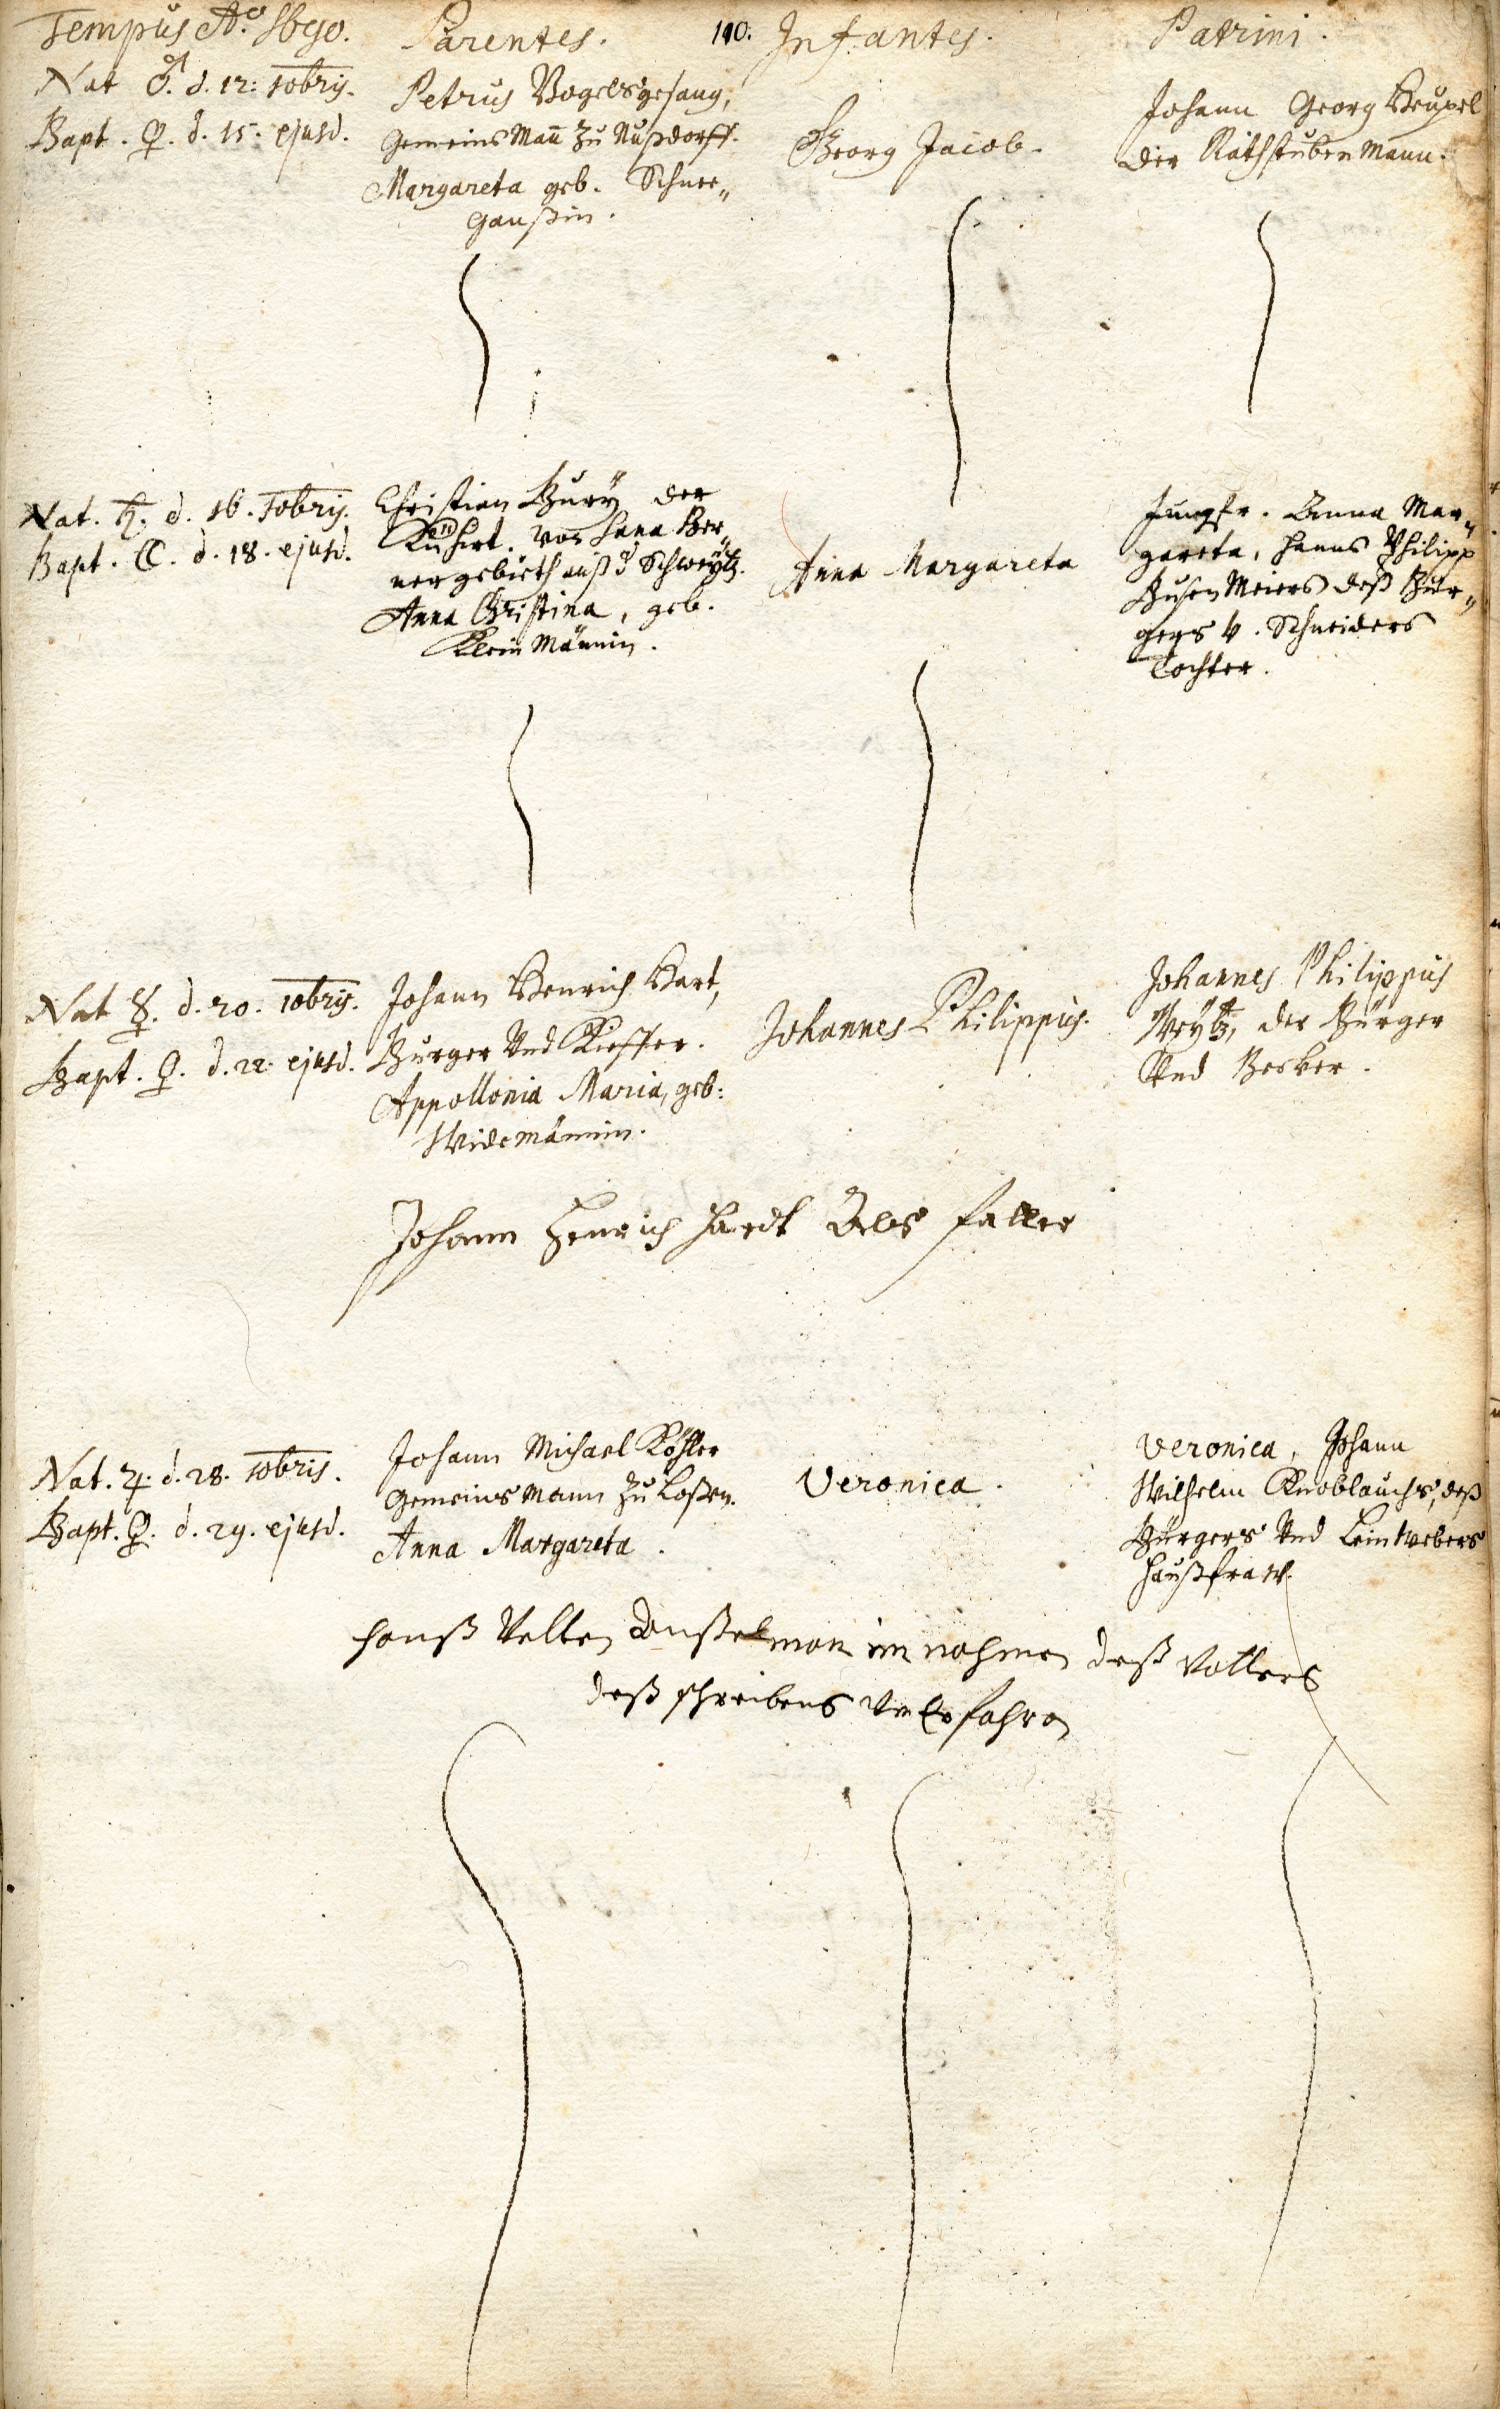 Tempus Aō. 1690.
Parentes.
110.
Infantes.
Patrini.
Nat ♂. d. 12. 10bris.
Bapt. ♀. d. 15. ejusd.
Petrus Vogelsgesang,
Gemeins Mañ zu Nußdorff.
Margareta geb. Schnee„
Gaußin.
Georg Jacob.
Johann Georg Heupel
der Rathstuben Mann.
Nat. ♄. d. 16. 10bris.
Bapt. ☾. d. 18. ejusd.
Christian Bury der
Kühirt. von Ber„
ner gebieth auß d Schweytz.
Anna Christina, geb.
Klein Männin.
Anna Margareta
Jungfr. Anna Mar„
gareta, Hanns Philipp
Meiers deß Bur„
gers v. Schneiders
Tochter.
Nat ☿. d. 20. 10bris.
Bapt. ♀. d. 22. ejusd.
Johann Henrich Hart,
Burger Und Kieffer.
Appollonia Maria, geb:
Widemännin.
Johannes Philippus.
Johannes Philippus
Weytz, der Bürger
Und Becker.
Johann Henrich Hardt Als Vatter
Nat. ♃. d. 28. 10bris.
Bapt. ♀. d. 29. ejusd.
Johann Michael Köhler
Gemeins Mann zu
Anna Margareta.
Veronica.
Veronica, Johann
Wilhelm Knoblauchs, deß
Bürgers Und Leinwebers
Haußfraw.
Hanß Velten im nahmen deß Vatters
deß schreibens Unerfahren